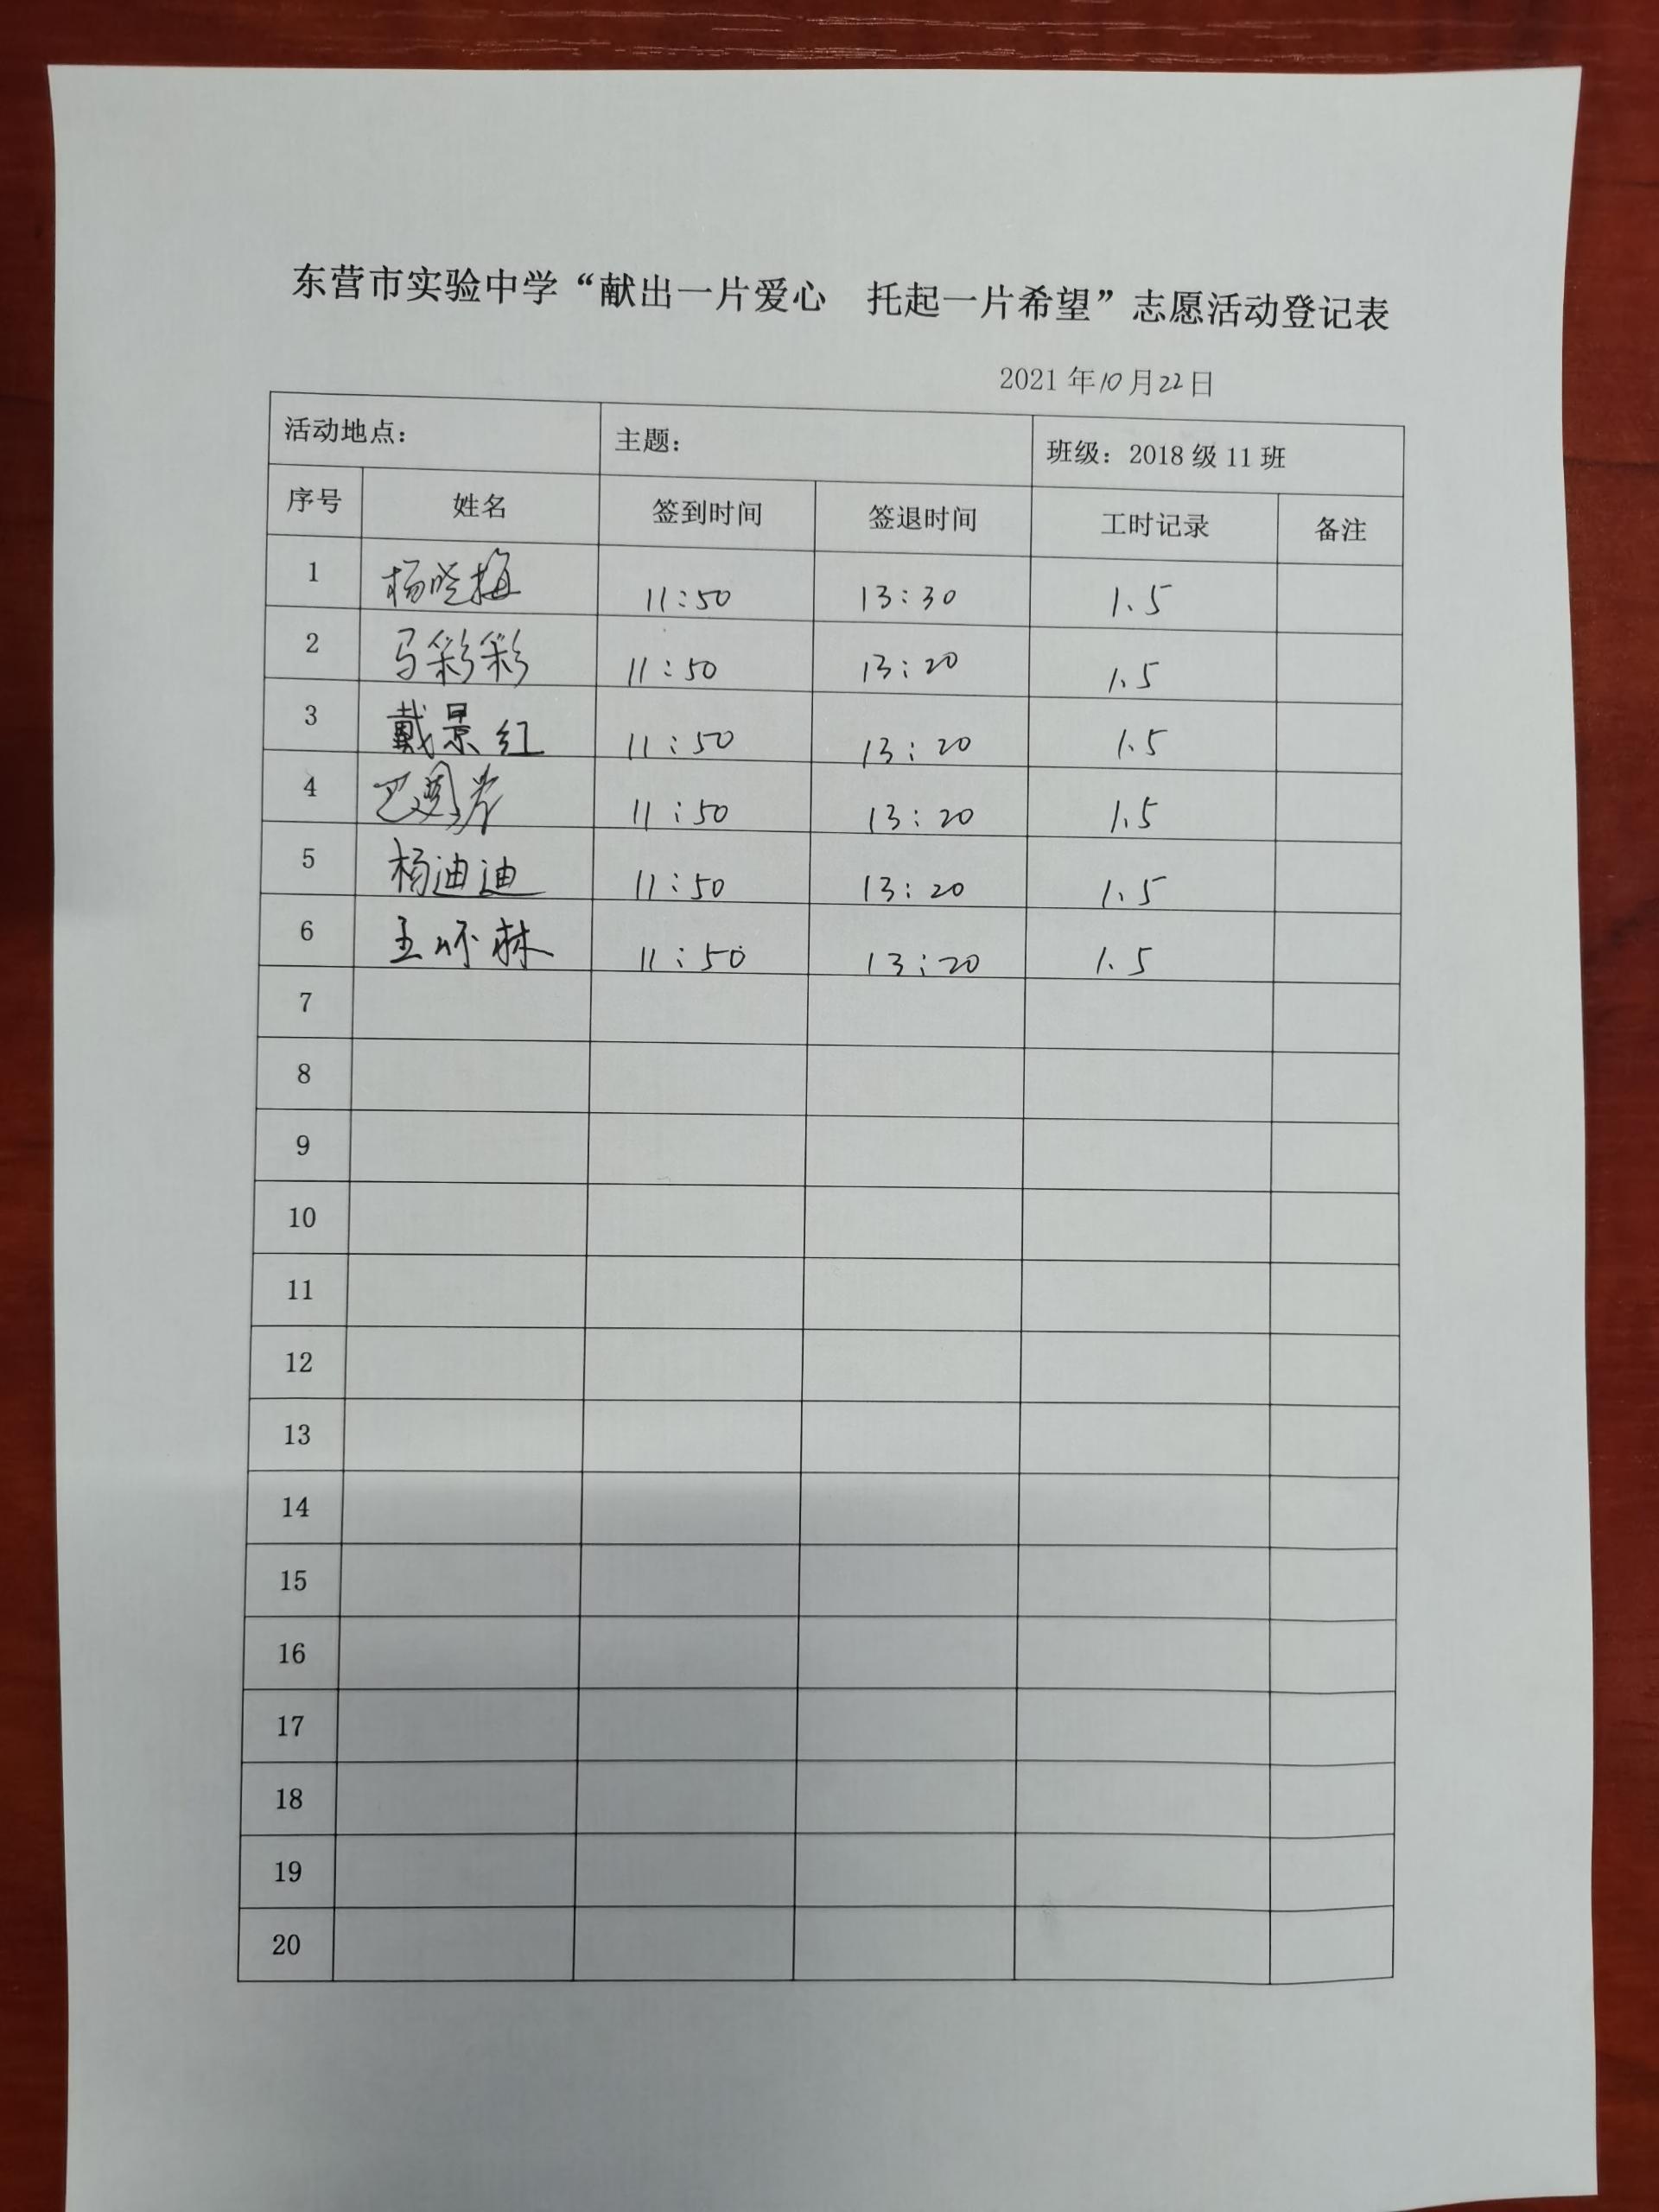 东营市实验中学“献出一片爱心　托起一片希望”志愿活动登记表
2021 年 10 月 22 日
活动地点： 主题： 班级：2018 级 11 班
序号 姓名 签到时间 签退时间 工时记录 备注
1 杨晓梅 11:50 13:30 1.5
2 马彩彩 11:50 13:20 1.5
3 戴景红 11:50 13:20 1.5
4 11:50 13:20 1.5
5 杨迪迪 11:50 13:20 1.5
6 王怀林 11:50 13:20 1.5
7
8
9
10
11
12
13
14
15
16
17
18
19
20